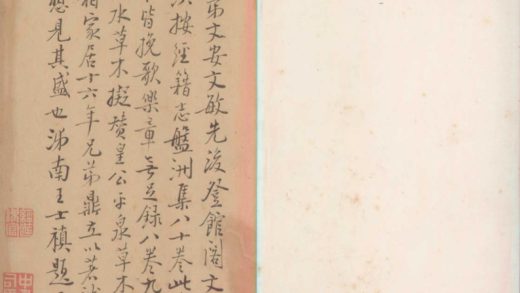 弟文安文敏先後登館閣文
按經籍志盤洲集八十卷此
皆挽歌樂章無足錄八卷九
水草木擬贊皇公平泉草木
家居十六年兄弟鼎立以著
想見其盛也泲南王士禛題